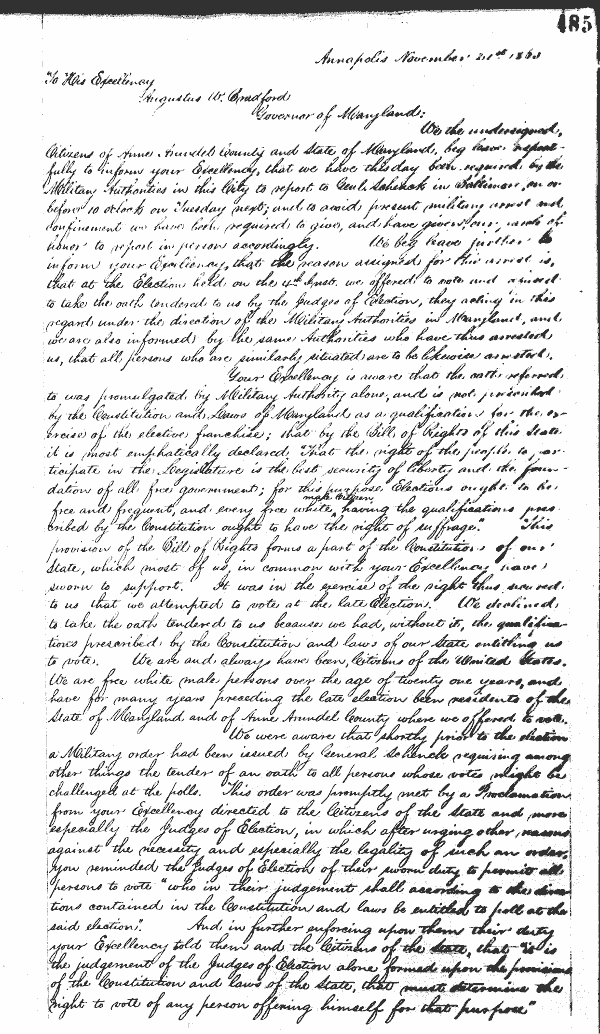 485
Annapolis November 21st 1863
To His Excellency
Augustus W. Bradford
Governor of Maryland:
We the undersigned,
Citizens of Anne Arundel County and State of Maryland, beg leave respect-
fully to inform your Excellency, that we have this day been required by the
Military Authorities in this City to report to Genl. Schenck in Baltimore, on or
before 10 o'clock on Tuesday next; and to avoid present military arrest and
confinement we have been required to give, and have given our parole of
honor to report in person accordingly. We beg leave further to
inform your Excellency, that the reason assigned for this arrest is,
that at the Election held on the 4th Inst. we offered to vote and refused
to take the oath tendered to us by the Judges of Election, they acting in this
regard under the direction of the Military Authorities in Maryland, and
we are also informed by the same Authorities who have thus arrested
us, that all persons who are similarly situated are to be likewise arrested.
Your Excellency is aware that the oath referred
to was promulgated by Military Authority alone, and is not prescribed
by the Constitution and Laws of Maryland as a qualification for the ex-
ercise of the elective franchise; that by the Bill of Rights of this State
it is most emphatically declared, "That the right of the people to par-
ticipate in the Legislature is the best security of liberty and the foun-
dation of all free government; for this purpose Elections ought to be
free and frequent, and every free white male citizen, having the qualifications pres-
cribed by the Constitution ought to have the right of suffrage." This
provision of the Bill of Rights forms a part of the Constitution of our
State, which most of us, in common with your Excellency have
sworn to support. It was in the exercise of the right thus secured
to us that we attempted to vote at the late Election. We declined
to take the oath tendered to us because we had, without it, the qualifica-
tions prescribed by the Constitution and laws of our State entitling us
to vote. We are and always have been, Citizens of the United States.
We are free white male persons over the age of twenty one years, and
have for many years preceding the late election been residents of the
State of Maryland and of Anne Arundel County where we offered to vote.
We were aware that shortly prior to the election
a Military order had been issued by General Schenck requiring among
other things the tender of an oath to all persons whose votes might be
challenged at the polls. This order was promptly met by a Proclamation
from your Excellency directed to the Citizens of the State and more
especially the Judges of Election, in which after urging other reasons
against the necessity and especially the legality of such an order,
you reminded the Judges of Election of their sworn duty to permit all
persons to vote "who in their judgement shall according to the direc-
tions contained in the Constitution and laws be entitled to poll at the
said election". And in further enforcing upon them their duty
your Excellency told them and the Citizens of the State, that "it is
the judgement of the Judges of Election alone formed upon the provisions
of the Constitution and laws of the State, that must determine the
right to vote of any person offering himself for that purpose"